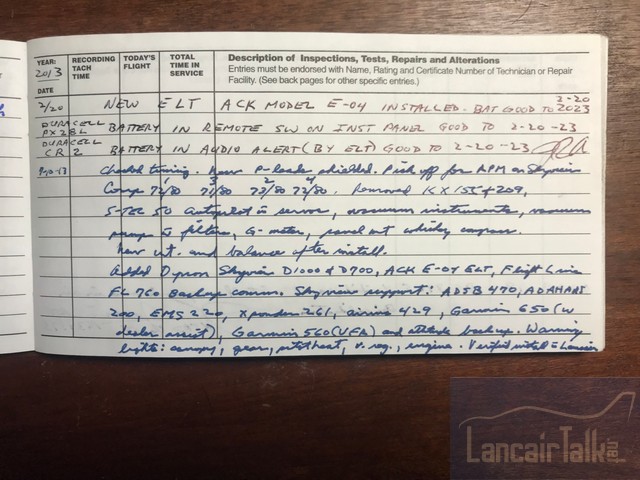 YEAR: 2013
DATE
RECORDING TACH TIME
TODAY'S FLIGHT
TOTAL TIME IN SERVICE
Description of Inspections, Tests, Repairs and Alterations
Entries must be endorsed with Name, Rating and Certificate Number of Technician or Repair
Facility. (See back pages for other specific entries.)
2/20 NEW ELT ACK MODEL E-04 INSTALLED. BAT GOOD TO 2-20 2023
DURACELL PX28L BATTERY IN REMOTE SW ON INST PANEL GOOD TO 2-20-23
DURACELL CR2 BATTERY IN AUDIO ALERT (BY ELT) GOOD TO 2-20-23
Checked timing. New P-leads shielded. Pick off for RPM on Skyview
Comp 1 2 3 4 /80 /80 72/80 72/80. Removed KX155+209,
S-TEC 50 Autopilot servos, vacuum instruments, vacuum
pump & filters, G-meter, panel out whisky compass.
New wt. and balance after install.
Added Dynon Skyview D1000 & D700, ACK E-04 ELT, Flight Line
FL 760 Backup comm. Skyview support: ADSB 470, ADAHARS
200, EMS 220, Xponder 261, airinc 429, Garmin 650 (w
dealer assist), Garmin 560 and attitude backup. Warning
lights: canopy, gear, pitot heat, v. reg., engine. Verified install = Lancair
LancairTalk.net